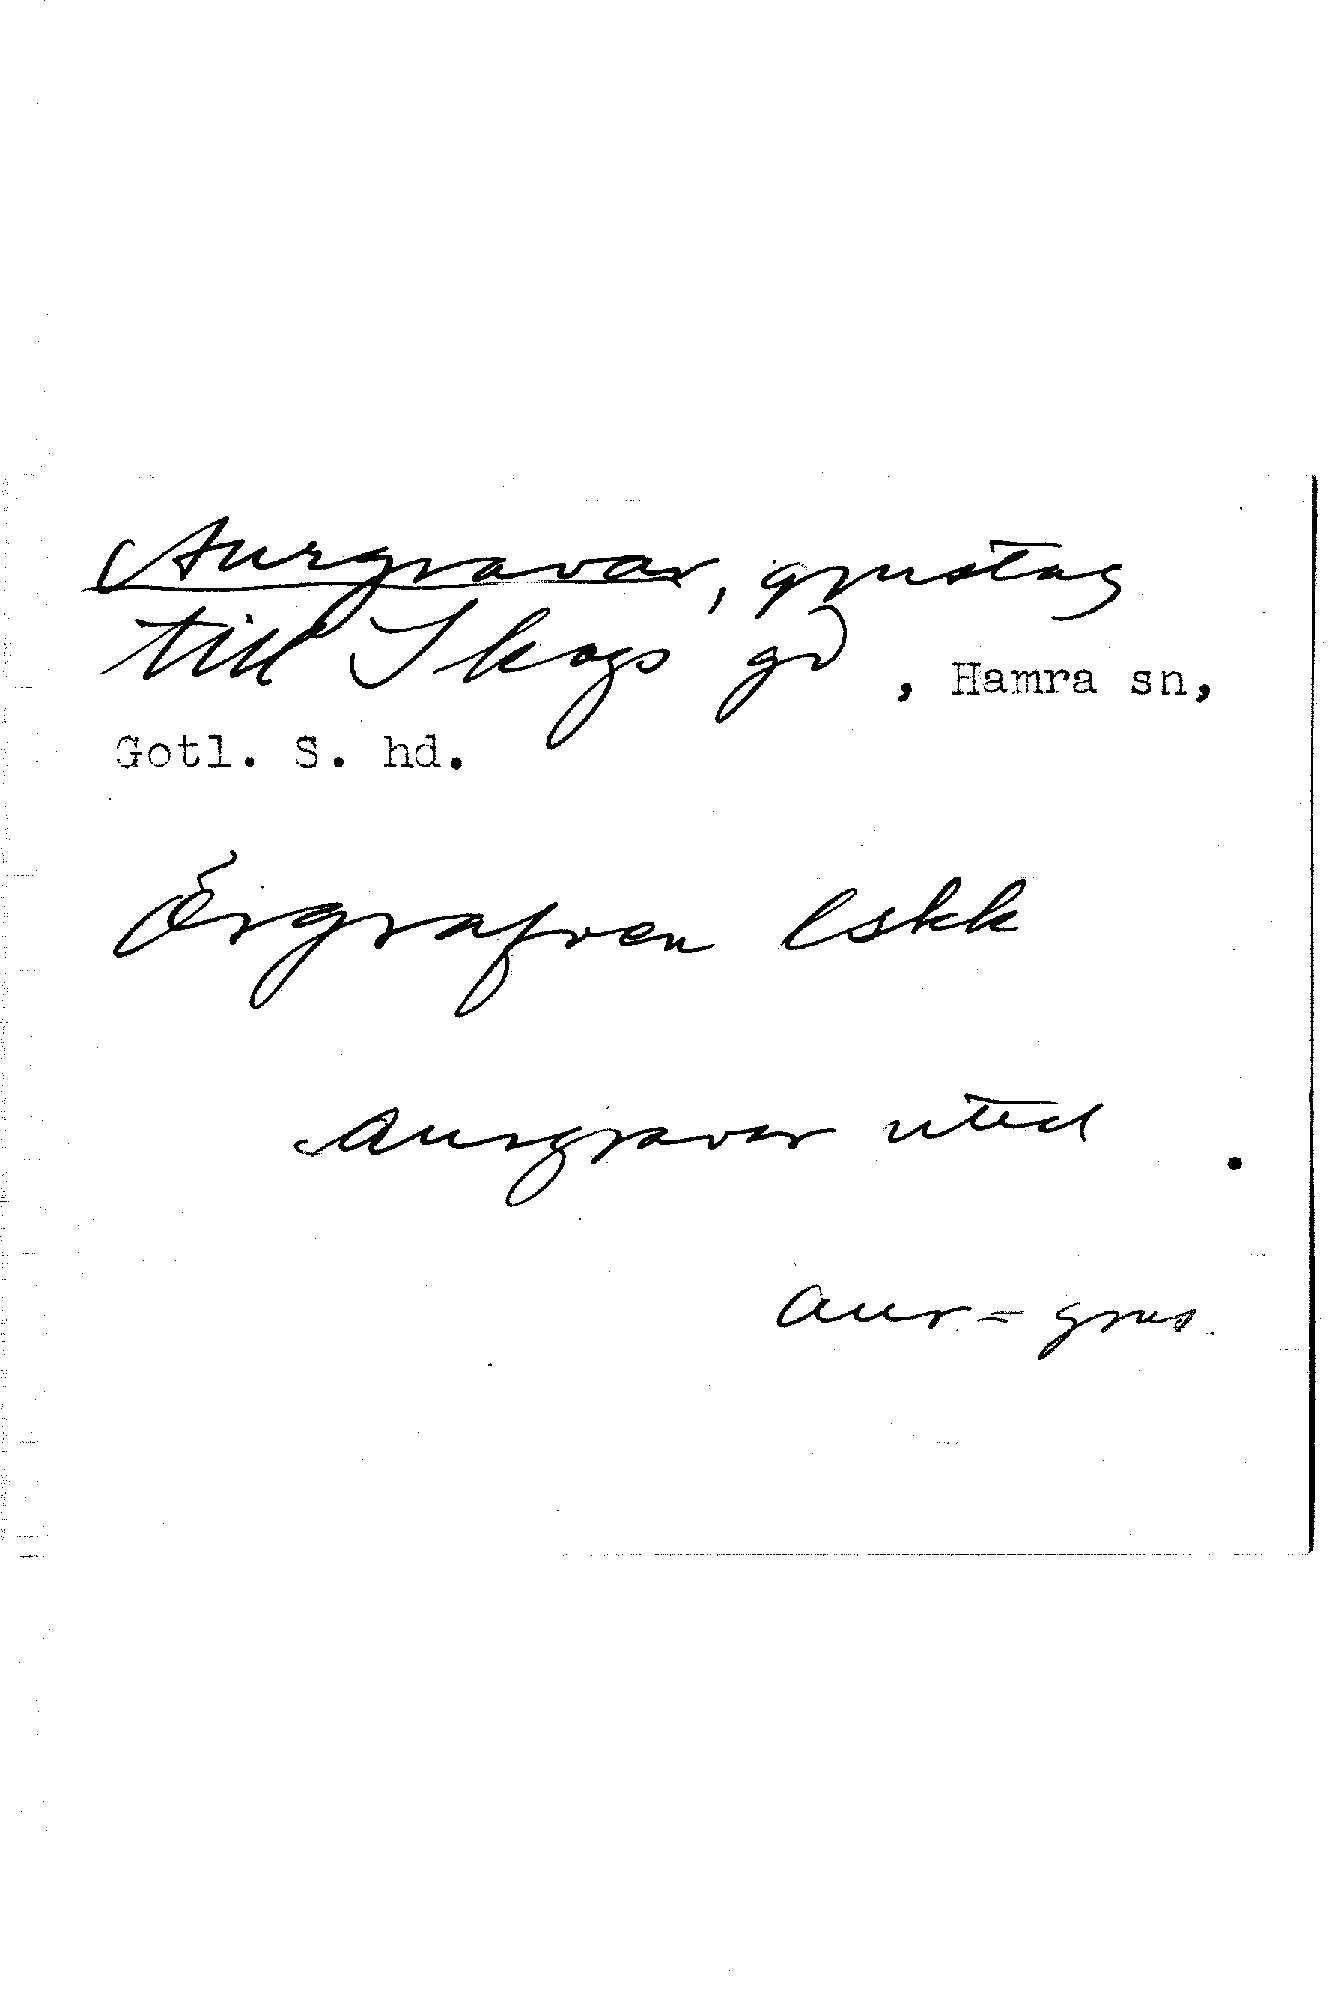 Aurgravar, grustag
till Skogs gd, Hamra sn,
Gotl. S. hd.
Örgrafven lskk
Aurgravar uttal
aur = grus